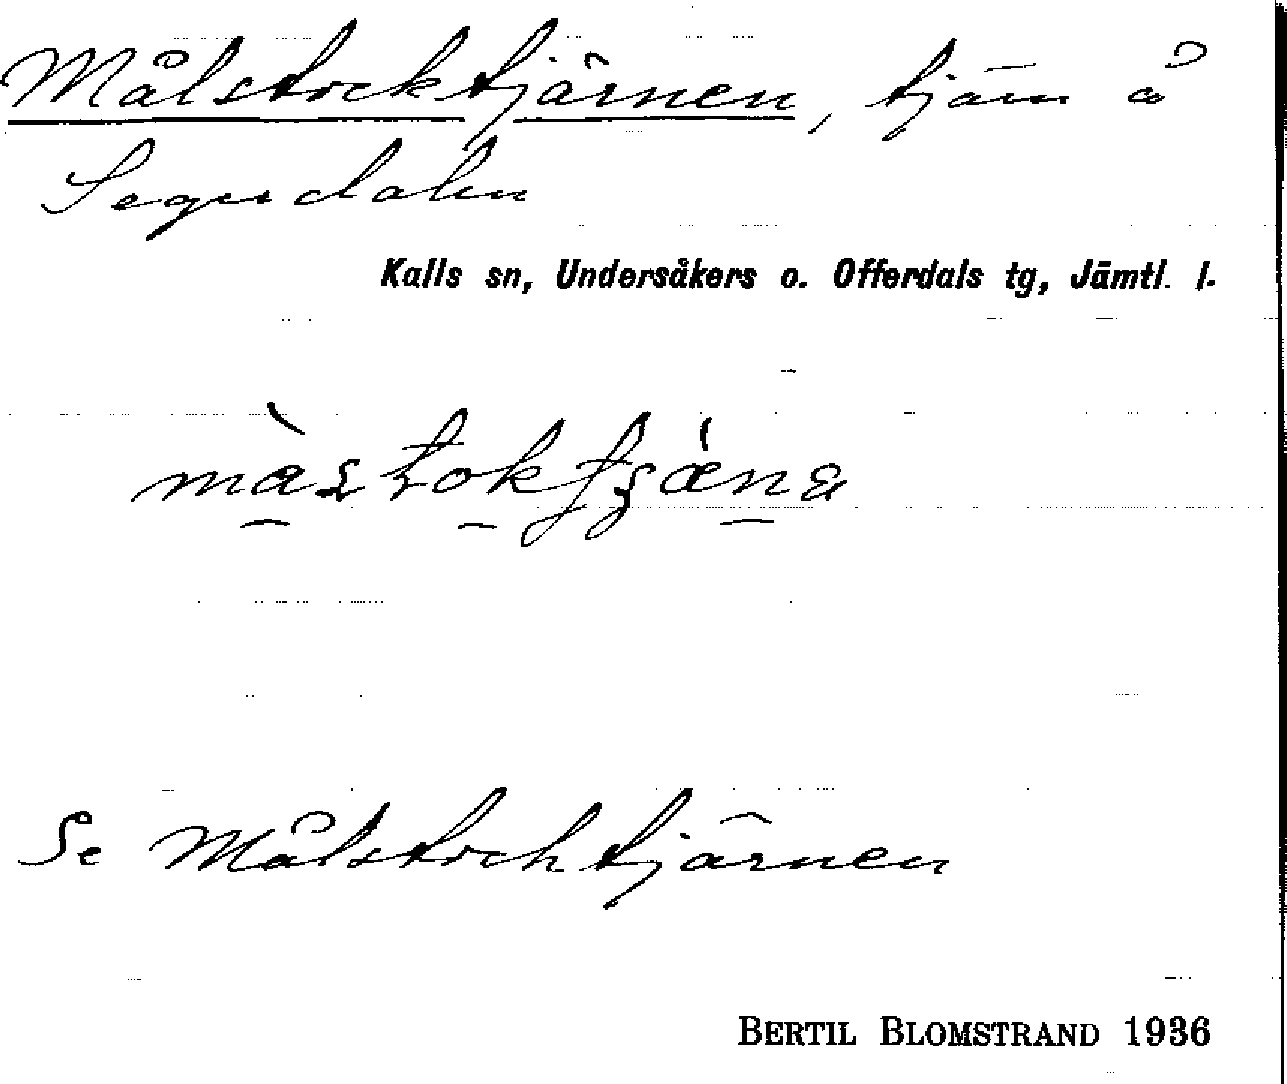 Målstocktjärnen, tjärn å
Segerdalen
Kalls sn, Undersåkers o. Offerdals tg, Jämtl. l.
Se Målstocktjärnen
BERTIL BLOMSTRAND 1936